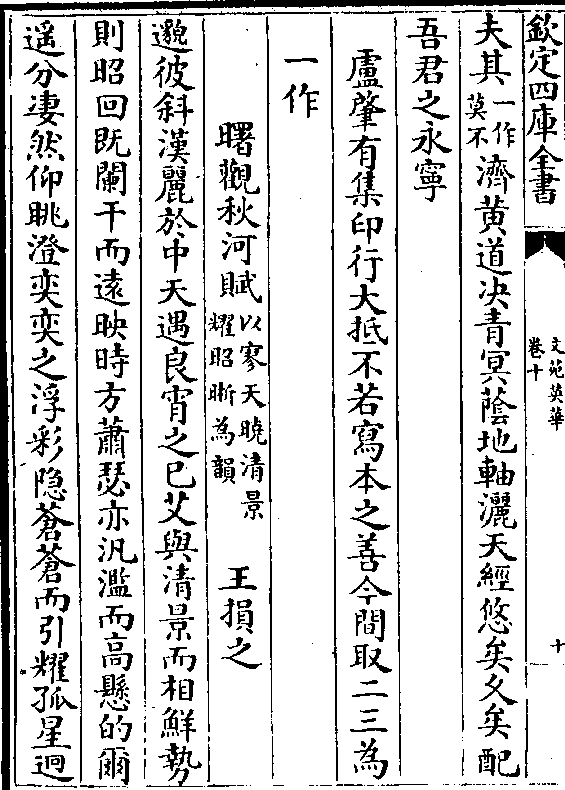 欽定四庫全書
文苑英華
卷十
十
夫其一作莫不濟黄道决青冥蔭地軸灑天經悠矣久矣配
吾君之永寧
盧肇有集印行大抵不若寫本之善今間取二三為
一作
曙觀秋河賦以寥天曉清景耀昭晣為韻 王損之
邈彼斜漢麗於中天遇良宵之已艾與清景而相鮮勢
則昭回既闌干而遠映時方蕭瑟亦汎濫而高懸的爾
遥分凄然仰眺澄奕奕之浮彩隐蒼蒼而引耀孤星迥